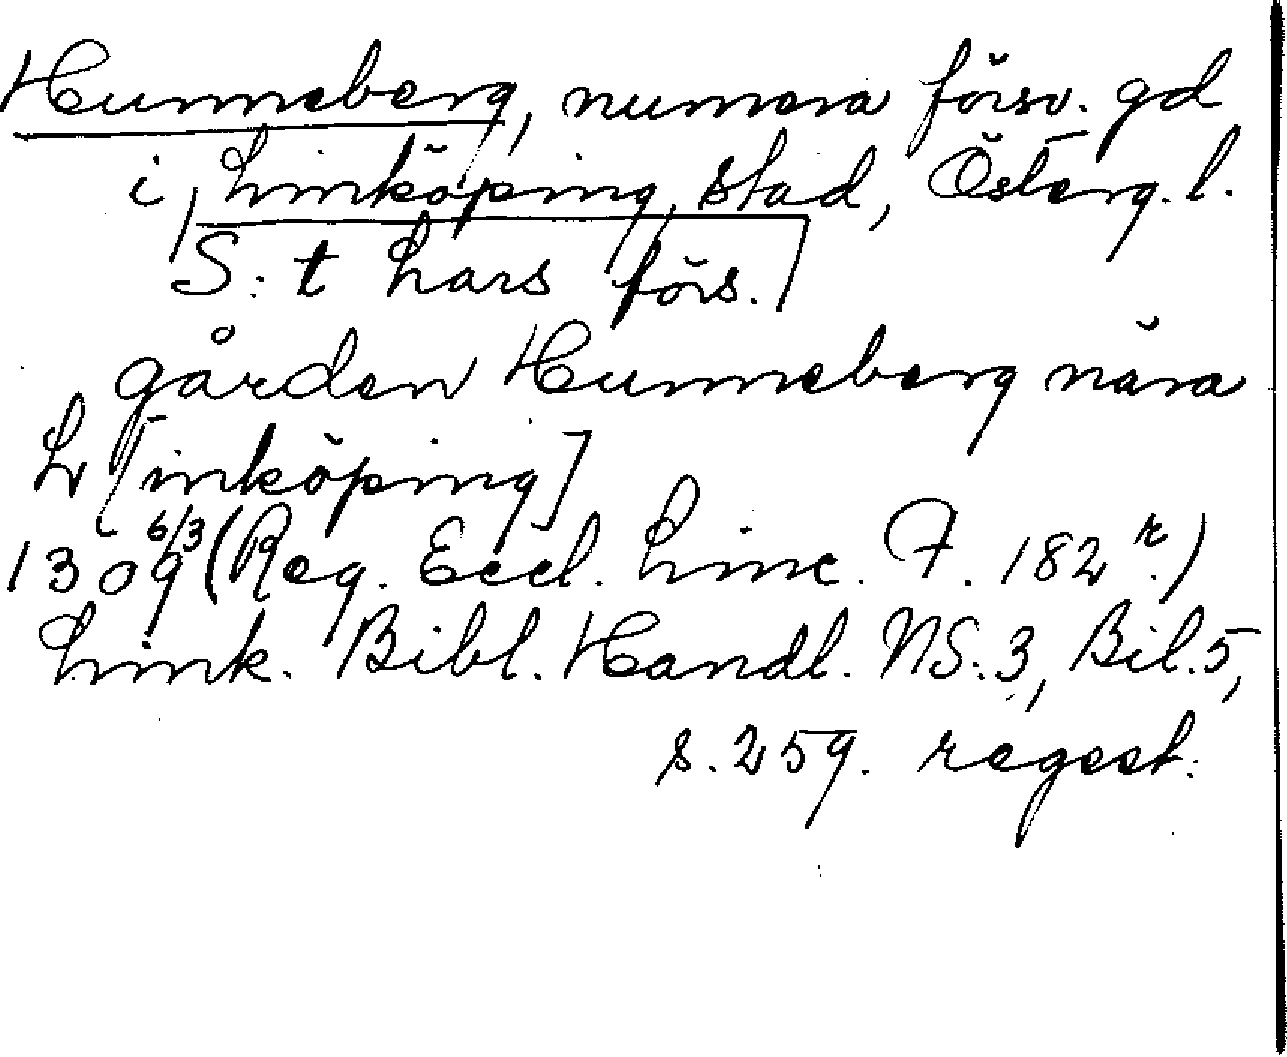 Hunneberg, numera försv. gd
i Linköping, stad, Österg. l.
S:t Lars förs.
gården Hunneberg nära
L[inköping]
1309 6/3 (Reg. Eccl. Linc. F. 182 r.)
Link. Bibl. Handl. NS. 3, Bil. 5,
s. 259. regest.